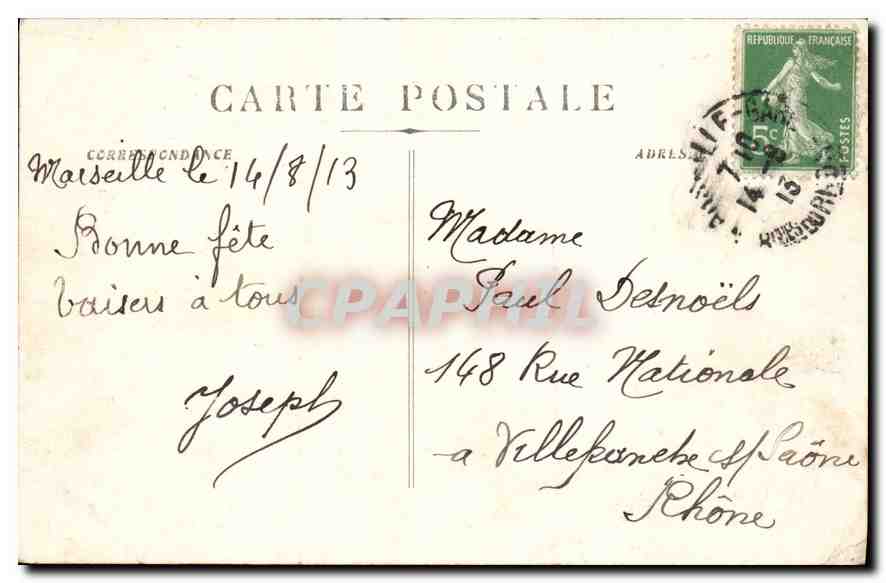 CARTE POSTALE
CORRESPONDANCE
ADRES
Marseille le 14/8/13
Bonne fête
baisers à tous
Joseph
Madame
Paul Desnoëls
148 Rue Nationale
a Villefranche s/Saône
Rhône
REPUBLIQUE FRANÇAISE
5c
POSTES
7 10
14 - 8
13
BOUCHES DU RHONE
CPAPHIL